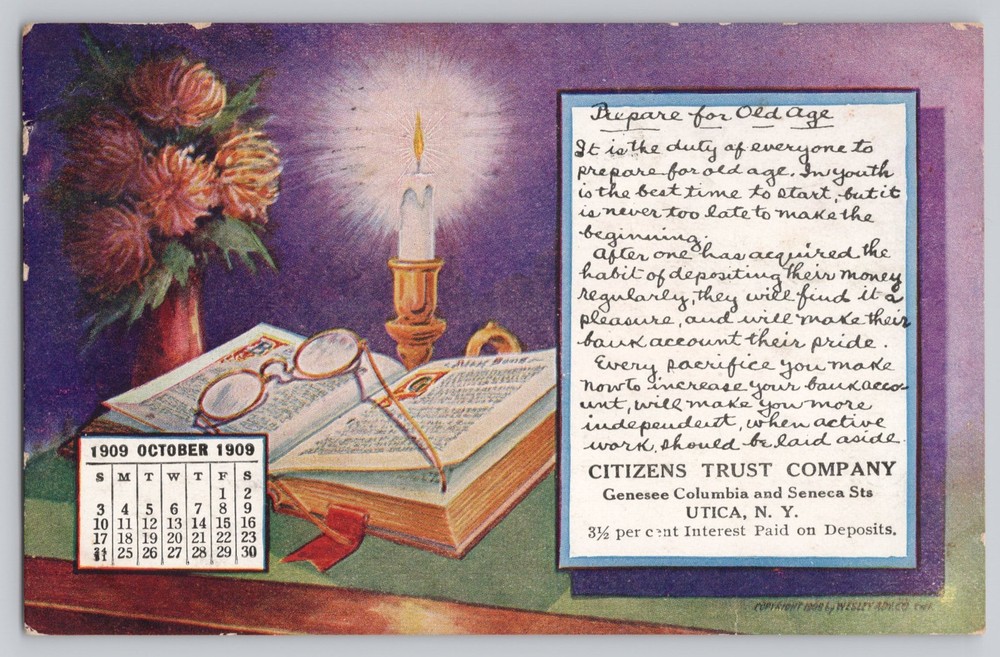 Prepare for Old Age
It is the duty of everyone to
prepare for old age. In youth
is the best time to start, but it
is never too late to make the
beginning.
After one has acquired the
habit of depositing their money
regularly, they will find it a
pleasure, and will make their
bank account their pride.
Every sacrifice you make
now to increase your bank acco-
unt, will make you more
independent, when active
work, should be laid aside.
CITIZENS TRUST COMPANY
Genesee Columbia and Seneca Sts
UTICA, N. Y.
3½ per cent Interest Paid on Deposits.
1909 OCTOBER 1909
S M T W T F S
1 2
3 4 5 6 7 8 9
10 11 12 13 14 15 16
17 18 19 20 21 22 23
24/31 25 26 27 28 29 30
COPYRIGHT by WESLEY ADV. CO. CHI.